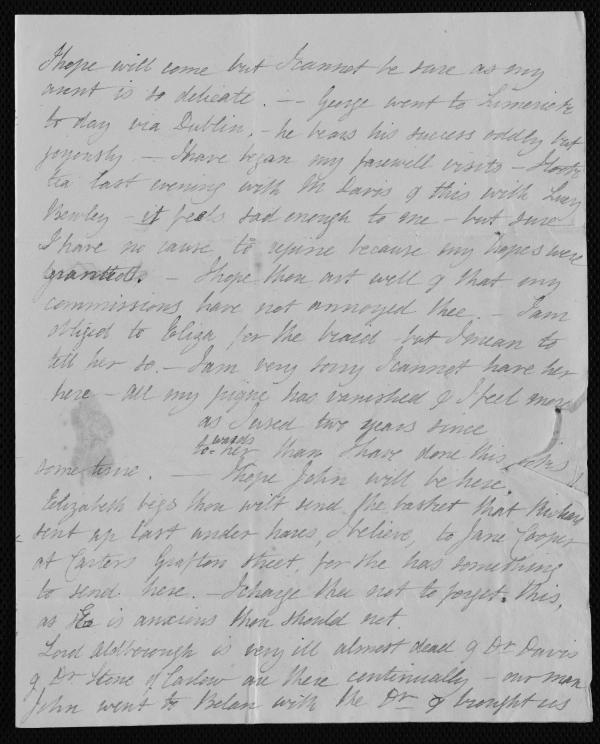 I hope will come but I cannot be sure as my
aunt is so delicate. -- George went to Limerick
to day via Dublin, - he bears his success oddly but
joyously. - I have began my farewell visits -
tea last evening with M Davis & this with Lucy
Bewley - it feels sad enough to me - but sure
I have no cause to repine because my hopes were
granted. - I hope thou art well & that my
commissions have not annoyed thee. - I am
obliged to Eliza for the braid - but I mean to
tell her so. - I am very sorry I cannot have her
here - all my pique has vanished & I feel more
as I used two years since
to-wards her than I have done this
some time. - I hope John will be here.
Elizabeth begs thou wilt send the basket that
sent up last under hares, I believe, to Jane Cooper
at Carters Grafton Street, for she has something
to send here. - I charge thee not to forget this,
as E is anxious thou should not.
Lord Aldborough is very ill almost dead & Dr Davis
& Dr Stone of Carlow are there continually - our man
John went to Belan with the Dr & brought us